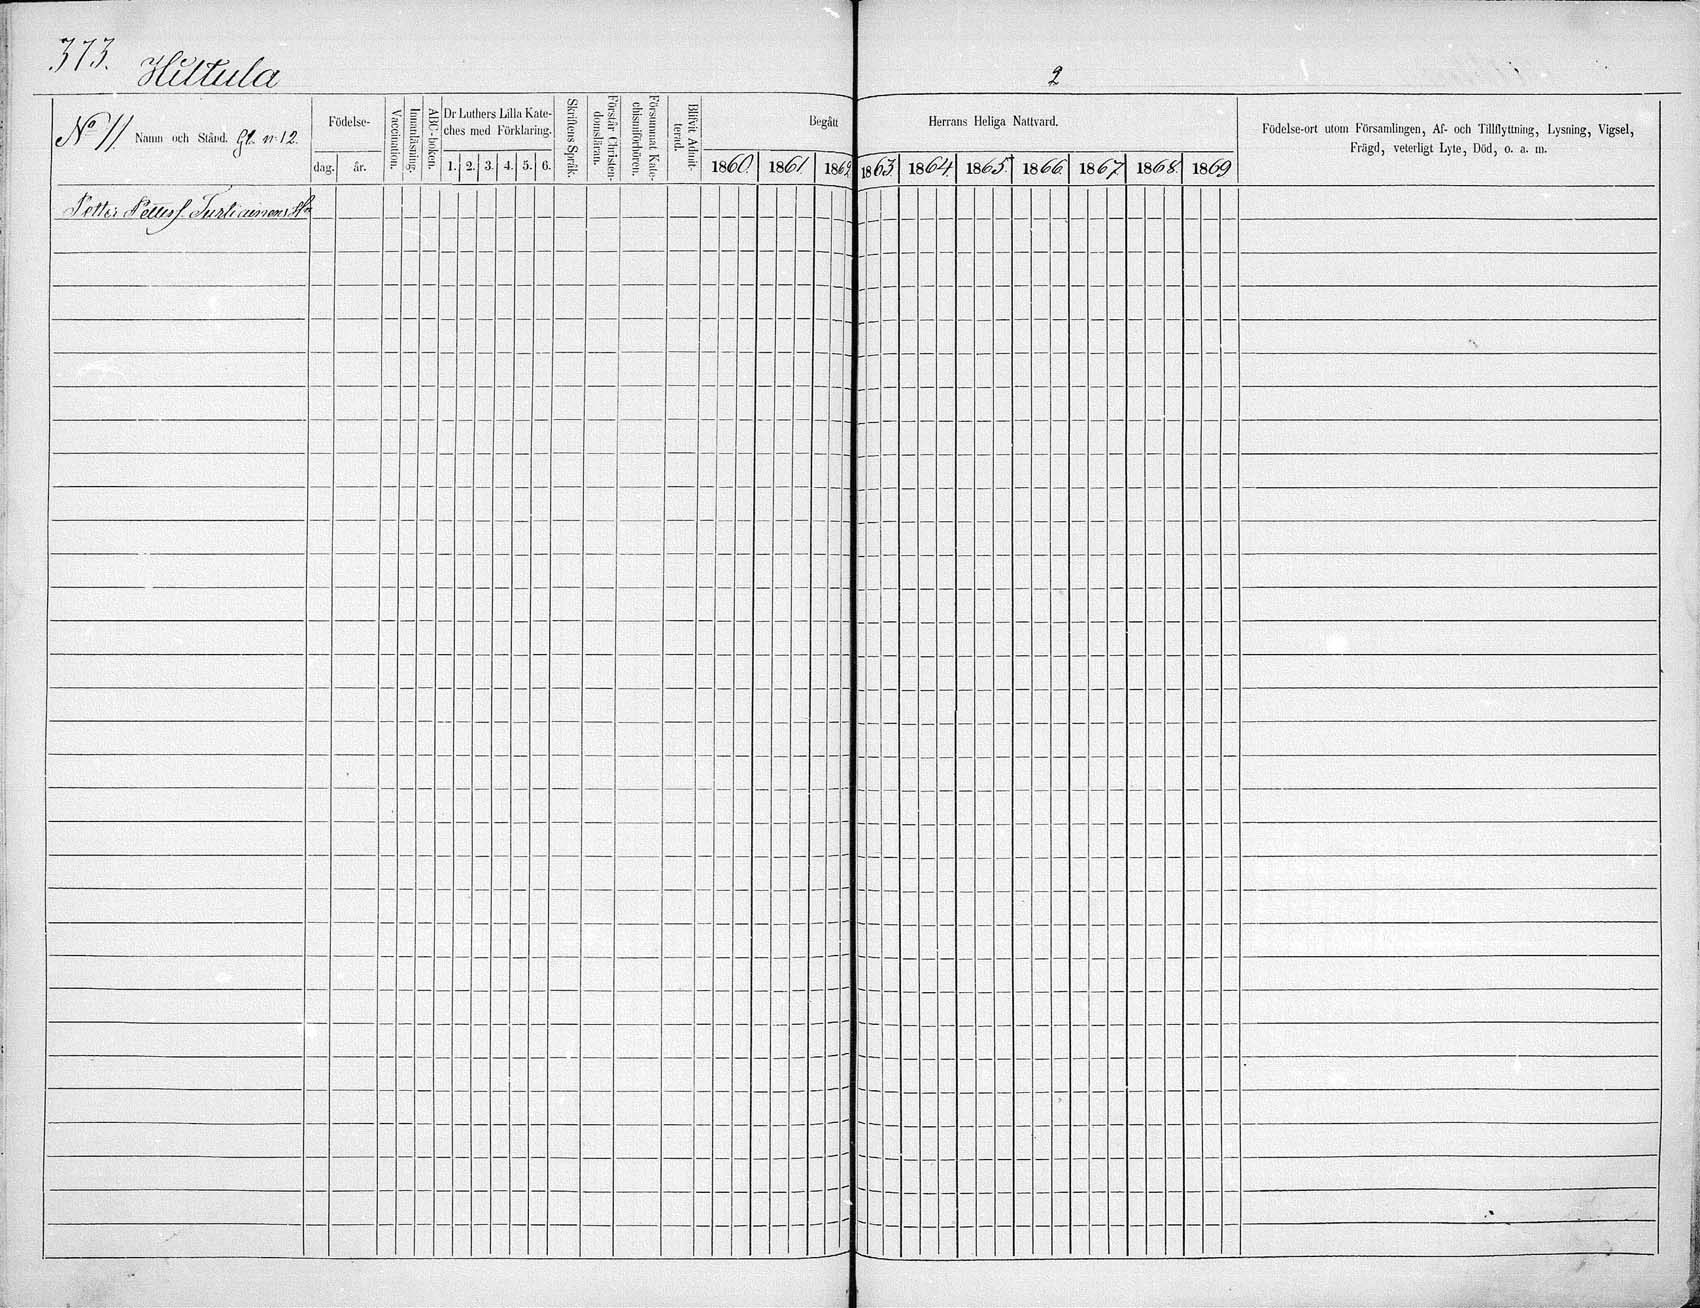 373.
Hiltula
2
No 11. Namn och Stånd. Gl. nr 12.
Födelse-
dag. år.
Vaccination.
Innanläsning.
ABC-boken.
Dr Luthers Lilla Kate-
ches med Förklaring.
1. 2. 3. 4. 5. 6.
Skriftens Språk.
Förstår Christen-
domsläran.
Försummat Kate-
chismiförhören.
Blifvit Admit-
terad.
Begått Herrans Heliga Nattvard.
1860. 1861. 1862. 1863. 1864. 1865. 1866. 1867 1868. 1869
Födelse-ort utom Församlingen, Af- och Tillflyttning, Lysning, Vigsel,
Frägd, veterligt Lyte, Död, o. a. m.
Petter Petterss. Turtiainens